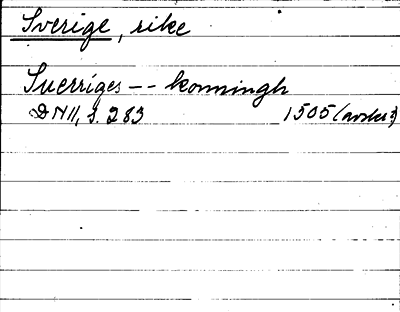 Sverige, rike
Suerriges -- konningh
DN II, s. 283 1505 (avskr)